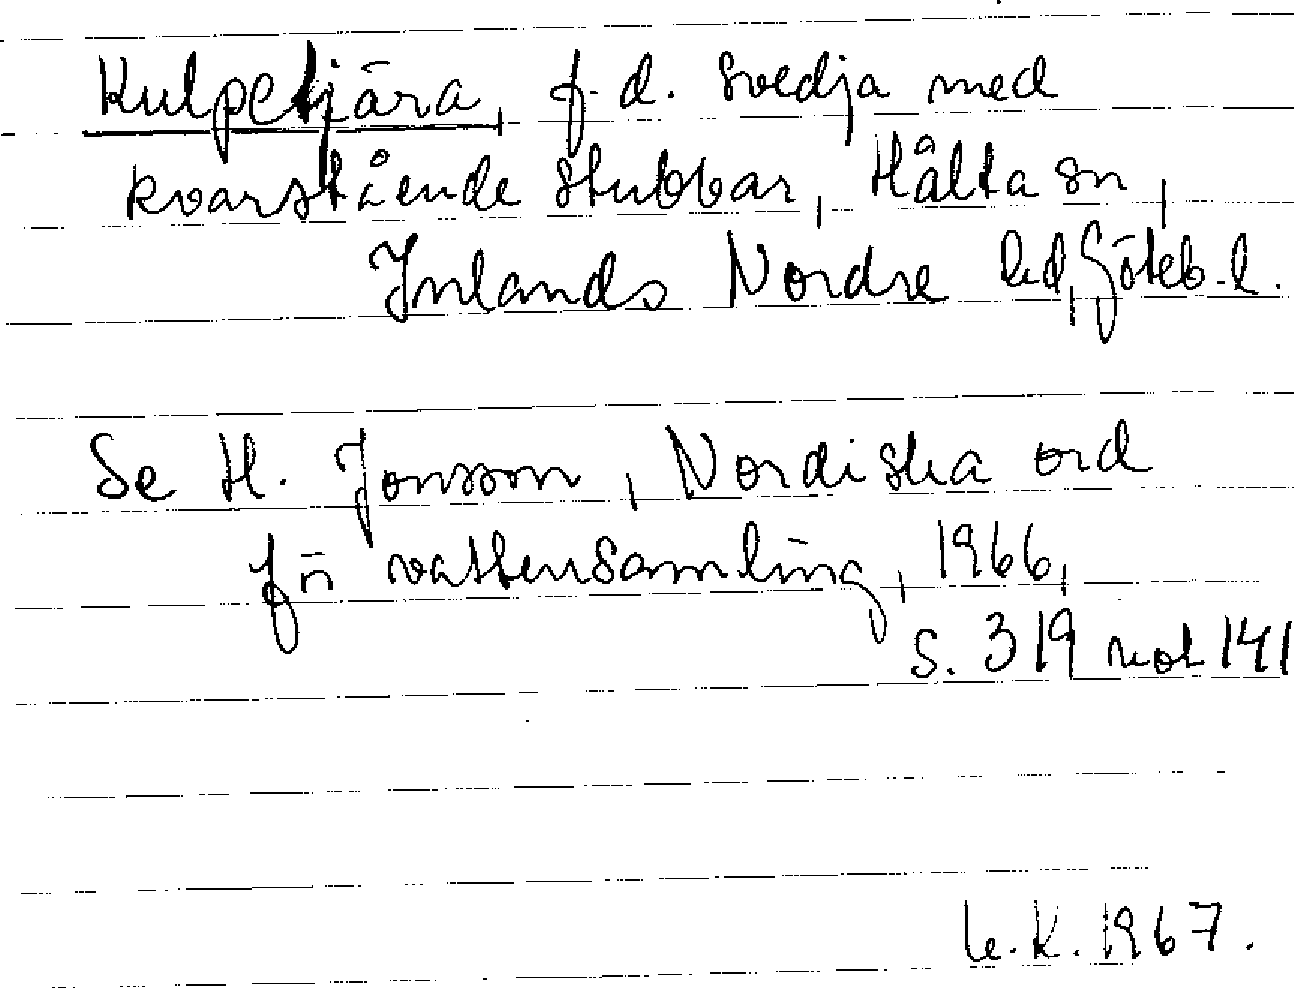 Kulpetjära, f.d. svedja med
kvarstående stubbar, Hålta sn,
Inlands Nordre hd, Göteb.l.
Se H. Jonsson, Nordiska ord
för vattensamling, 1966,
s. 319 not 141
K. 1967.